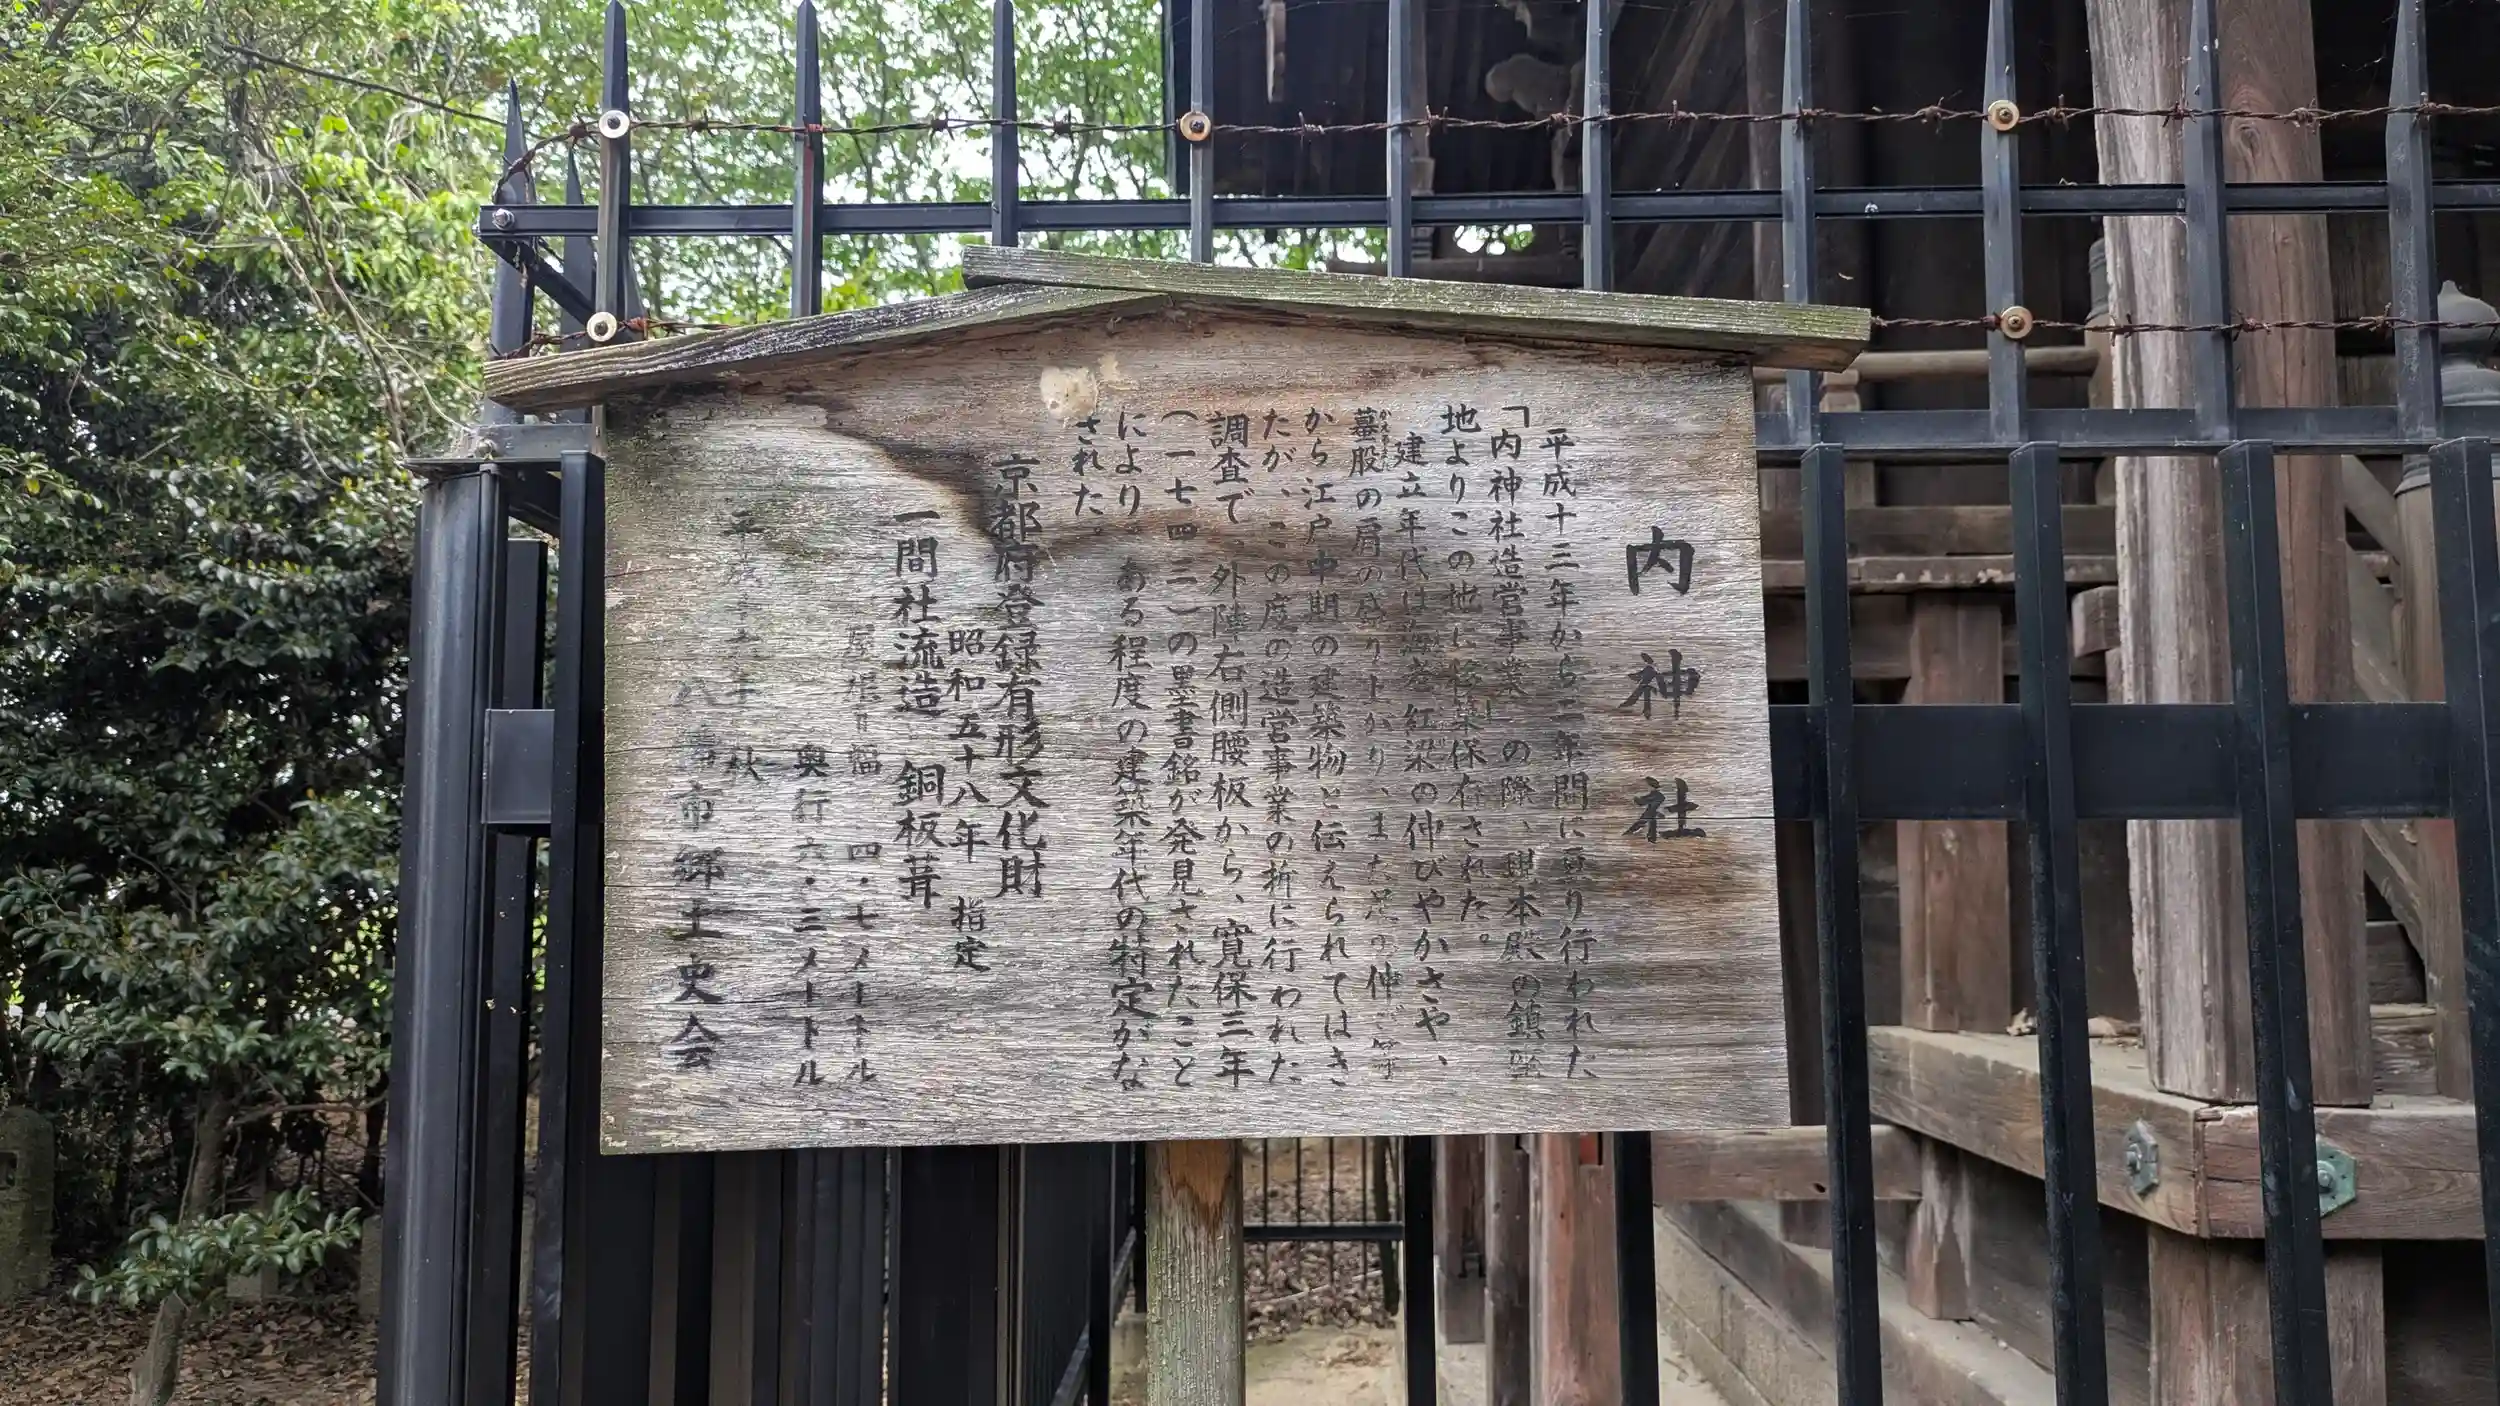 内神社
平成十三年から二年間に亘り行われた
「内神社造営事業」の際、現本殿の鎮座
地よりこの地に移築保存された。
建立年代は海老紅梁の伸びやかさや、
蟇股の肩の盛り上がり、また足の伸び等
から江戸中期の建築物と伝えられてはき
たが、この度の造営事業の折に行われた
調査で、外陣右側腰板から、寛保三年
(一七四三)の墨書銘が発見されたこと
により。ある程度の建築年代の特定がな
された。
京都府登録有形文化財
昭和五十八年 指定
一間社流造 銅板葺
屋根 幅 四・七メートル
奥行六・三メートル
平成 年 秋
八幡市郷土史会